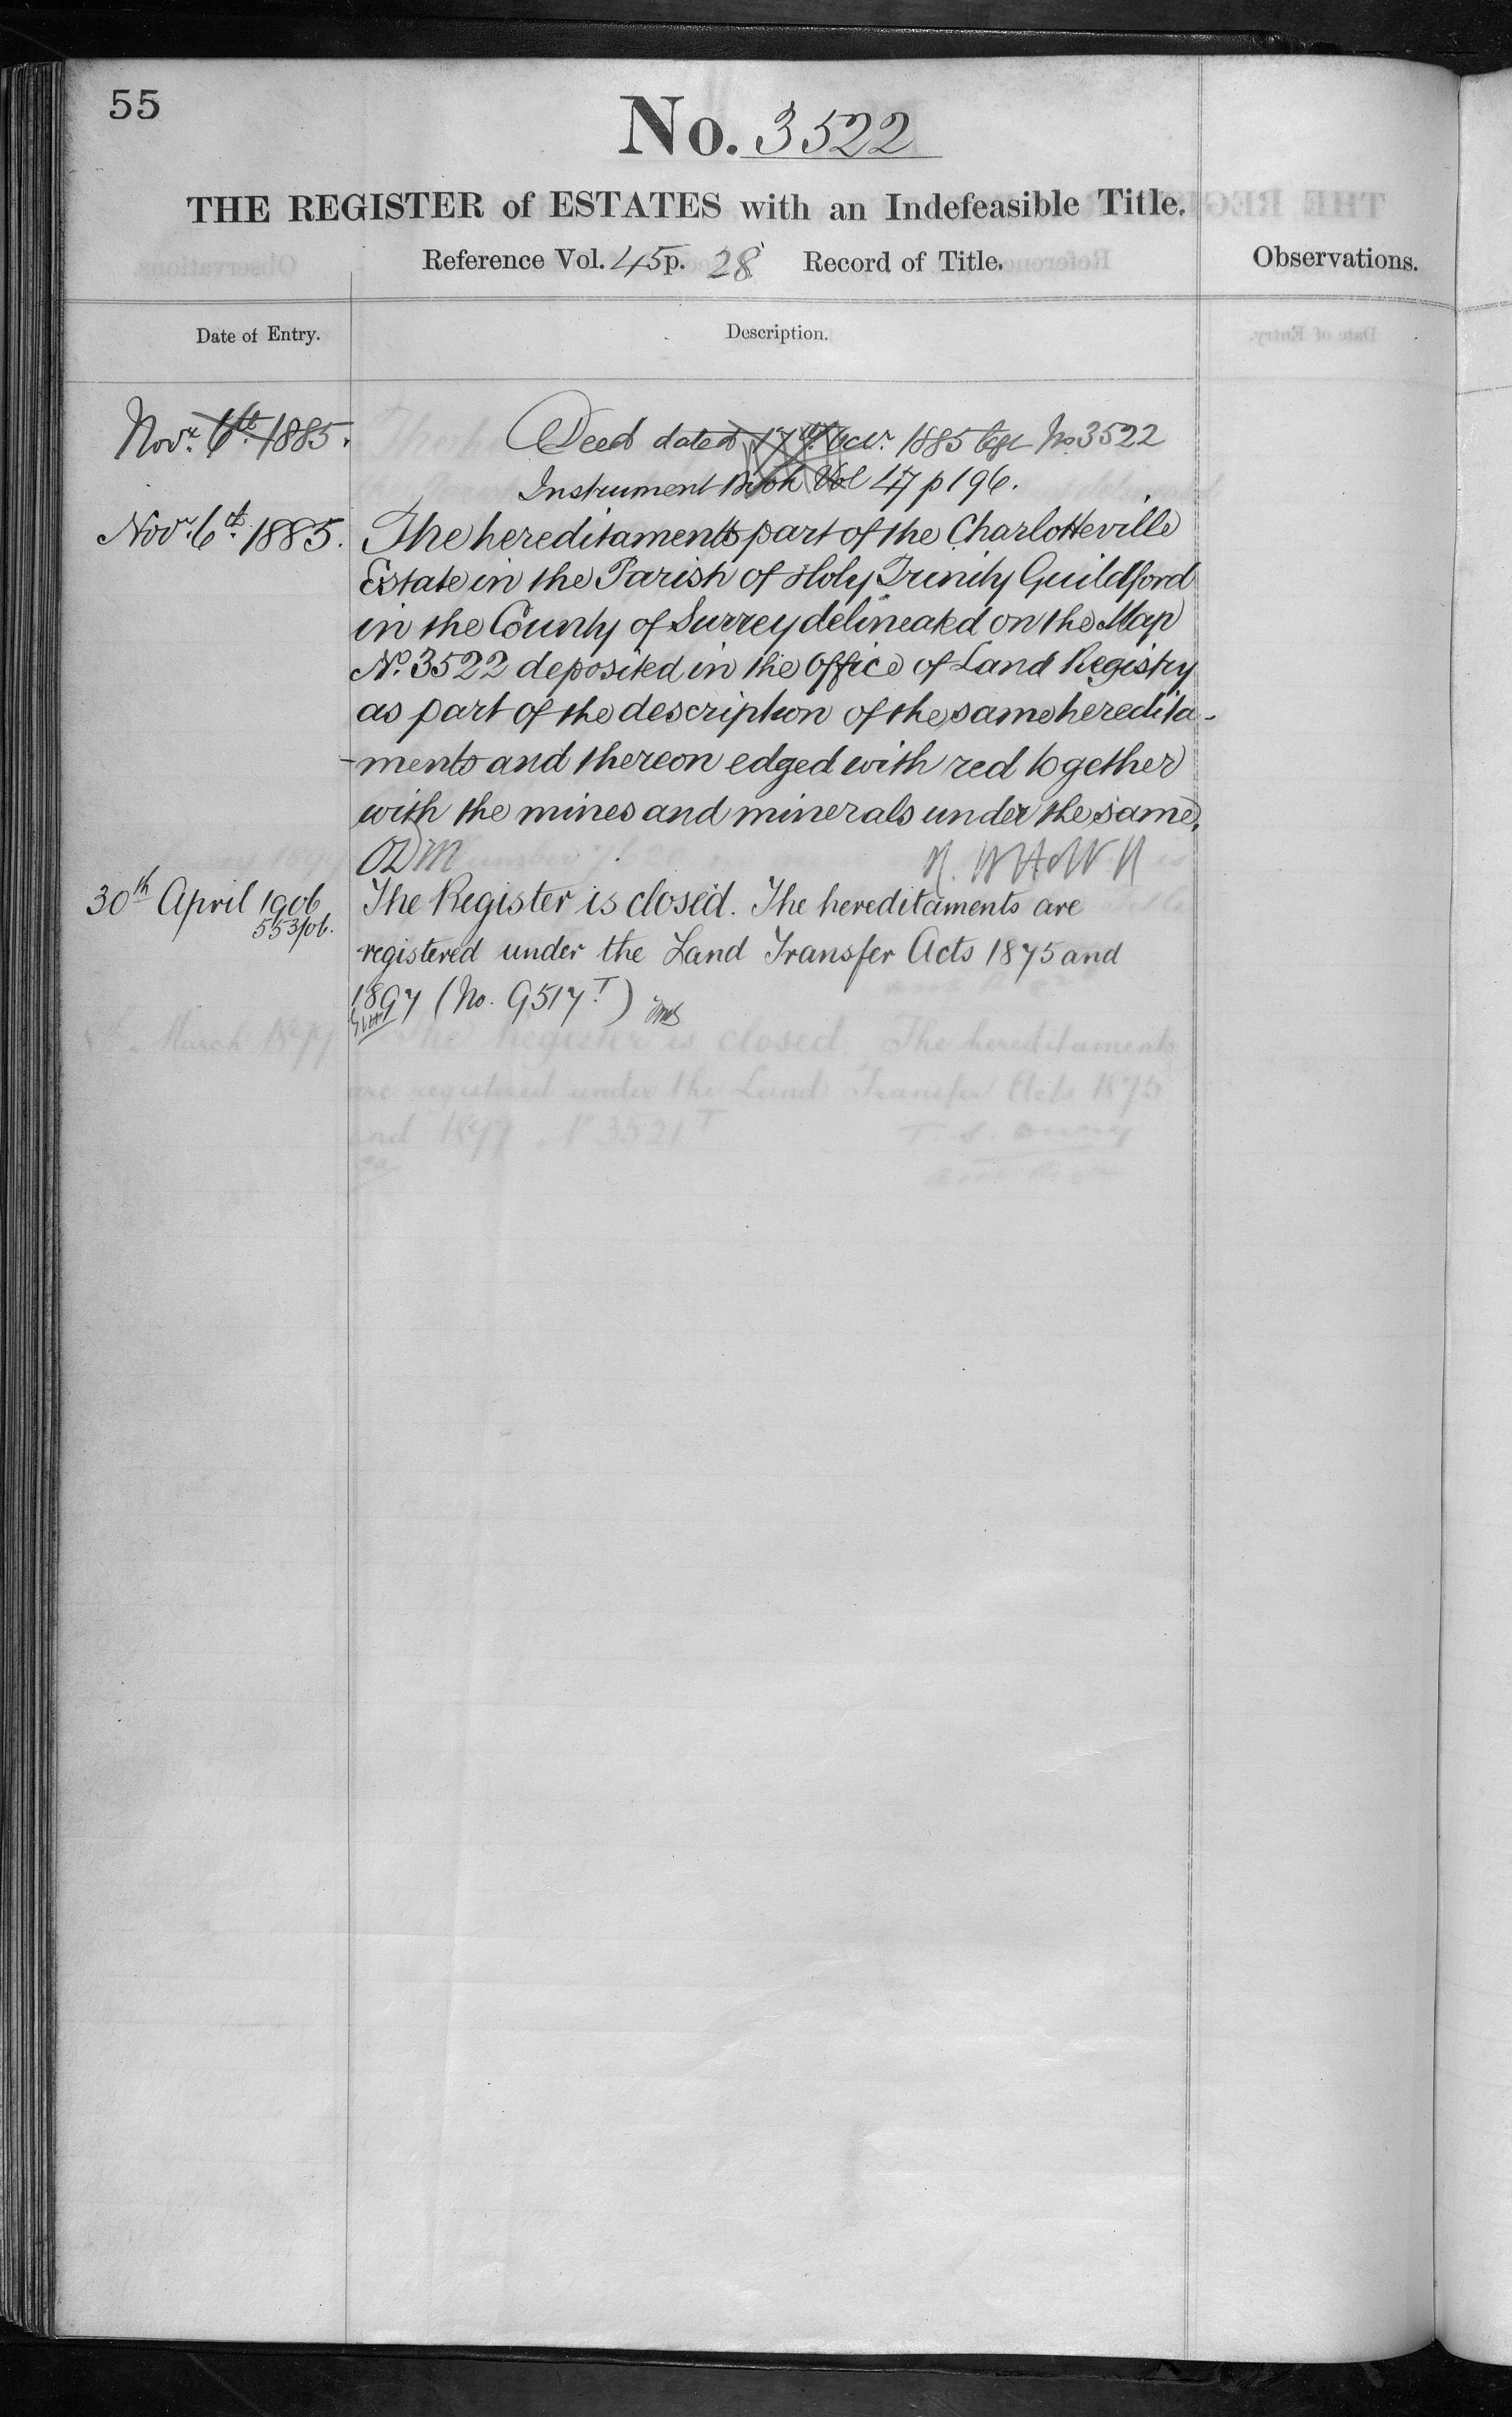 55
No. 3522
THE REGISTER of ESTATES with an Indefeasible Title.
Reference Vol. 45 p. 28 Record of Title.
Observations.
Date of Entry.
Description.
Novr. 6th. 1885.
Deed dated 17th Octr. 1885 No 3522
Instrument Book Vol 47 p 196.
Novr. 6th. 1885.
The hereditaments part of the Charlotteville
Estate in the Parish of Holy Trinity Guildford
in the County of Surrey delineated on the Map
No. 3522 deposited in the Office of Land Registry
as part of the description of the same heredita-
-ments and thereon edged with red together
with the mines and minerals under the same.
30th April 1906
553/06.
The Register is closed. The hereditaments are
registered under the Land Transfer Acts 1875 and
1897 (No. 9517T)